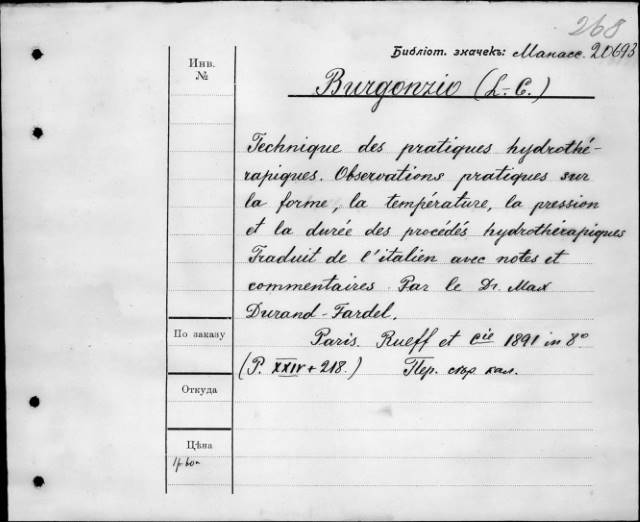 268
Библіот. значекъ: Манасс. 20693
Инв.
№
Burgonzio (L.-C.)
Technique des pratiques hydrothé-
rapiques. Observations pratiques sur
la forme, la température, la pression
et la durée des procédés hydrothérapiques
Traduit de l'italien avec notes et
commentaires Par le Dr. Max
Durand-Fardel.
По заказу
Paris. Rueff et Cie 1891 in 8°
(P. XXIV + 218.) Пер. кал.
Откуда
Цѣна
1 р 60к